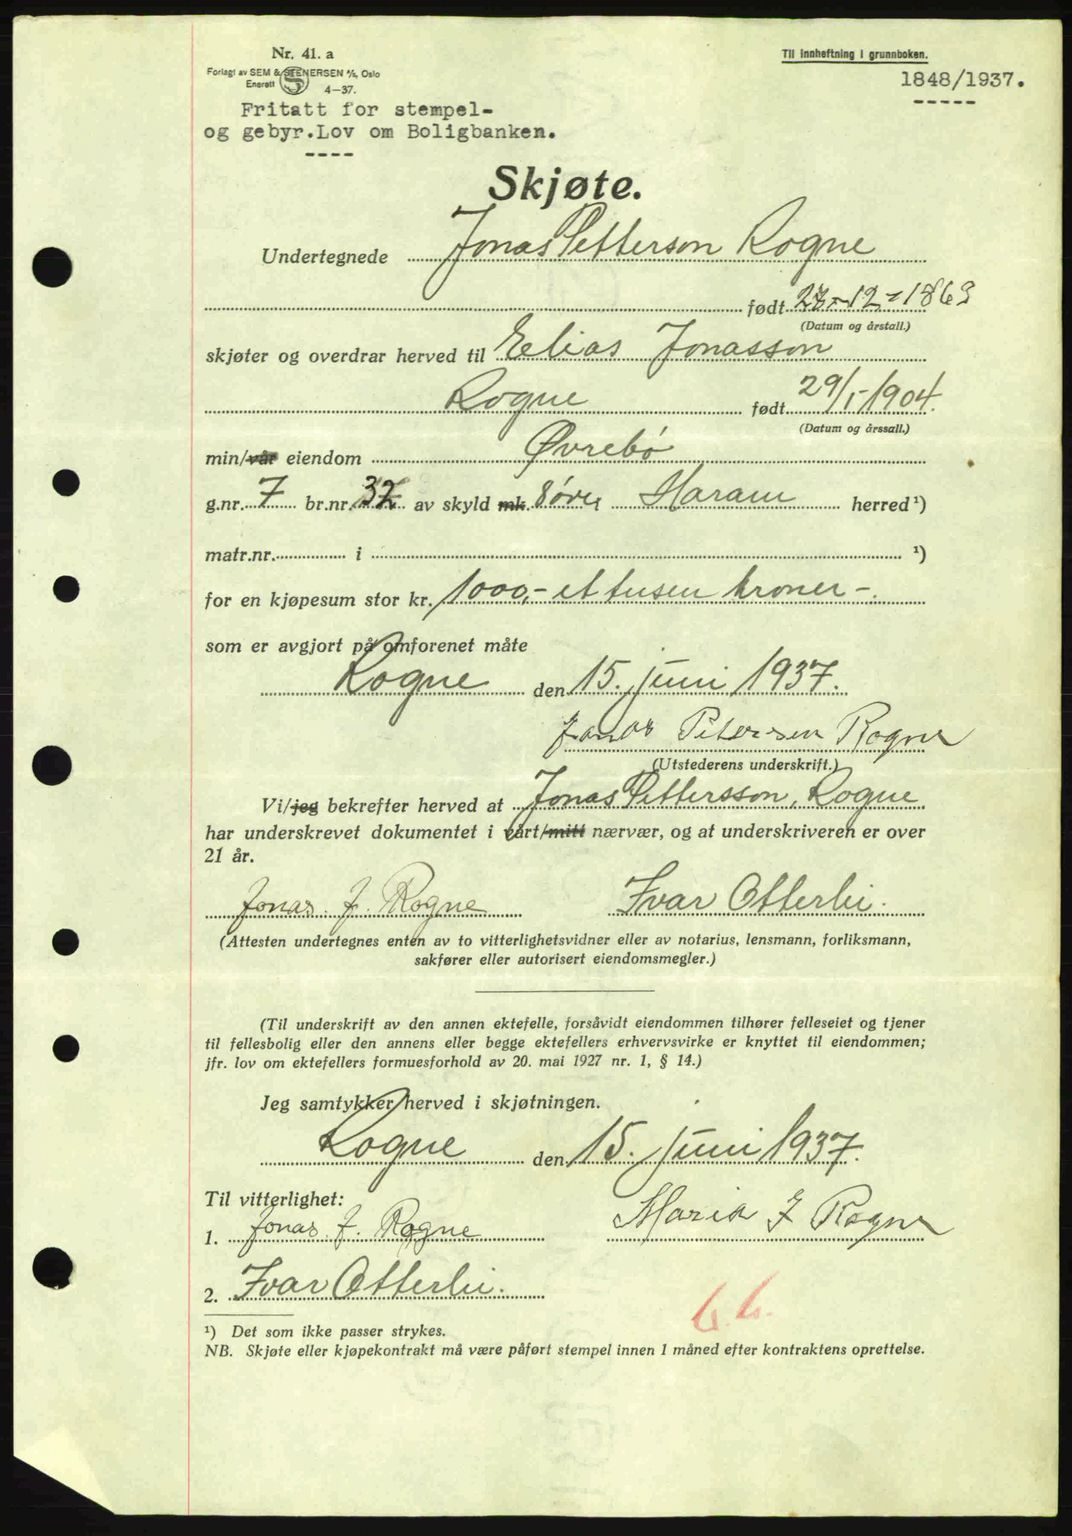 Nr. 41. a
Forlagt av SEM & STENERSEN A/S, Oslo
Enerett 4—37.
Til innheftning i grunnboken.
1848/1937.
-----
Fritatt for stempel-
og gebyr.Lov om Boligbanken.
----
Skjøte.
Undertegnede Jonas Petterson Rogne
født 27-12-1863
(Datum og årstall.)
skjøter og overdrar herved til Elias Jonasson
Rogne født 29/1-1904.
(Datum og årssall.)
min/vår eiendom Øvrebø
g.nr. 7 br.nr. 32 av skyld mk. 8 øre, Haram herred ¹)
matr.nr. i ¹)
for en kjøpesum stor kr. 1000,- et tusen kroner -.
som er avgjort på omforenet måte
Rogne den 15. juni 1937.
Jonas Petersen Rogne
(Utstederens underskrift.)
Vi/jeg bekrefter herved at Jonas Pettersson, Rogne
har underskrevet dokumentet i vårt/mitt nærvær, og at underskriveren er over
21 år.
Jonas. J. Rogne Ivar Otterlei.
(Attesten undertegnes enten av to vitterlighetsvidner eller av notarius, lensmann, forliksmann,
sakfører eller autorisert eiendomsmegler.)
(Til underskrift av den annen ektefelle, forsåvidt eiendommen tilhører felleseiet og tjener
til fellesbolig eller den annens eller begge ektefellers erhvervsvirke er knyttet til eiendommen;
jfr. lov om ektefellers formuesforhold av 20. mai 1927 nr. 1, § 14.)
Jeg samtykker herved i skjøtningen.
Rogne den 15. juni 1937.
Til vitterlighet:
1. Jonas. J. Rogne Marie J Rogne
2. Ivar Otterlei.
¹) Det som ikke passer strykes.
NB. Skjøte eller kjøpekontrakt må være påført stempel innen 1 måned efter kontraktens oprettelse.